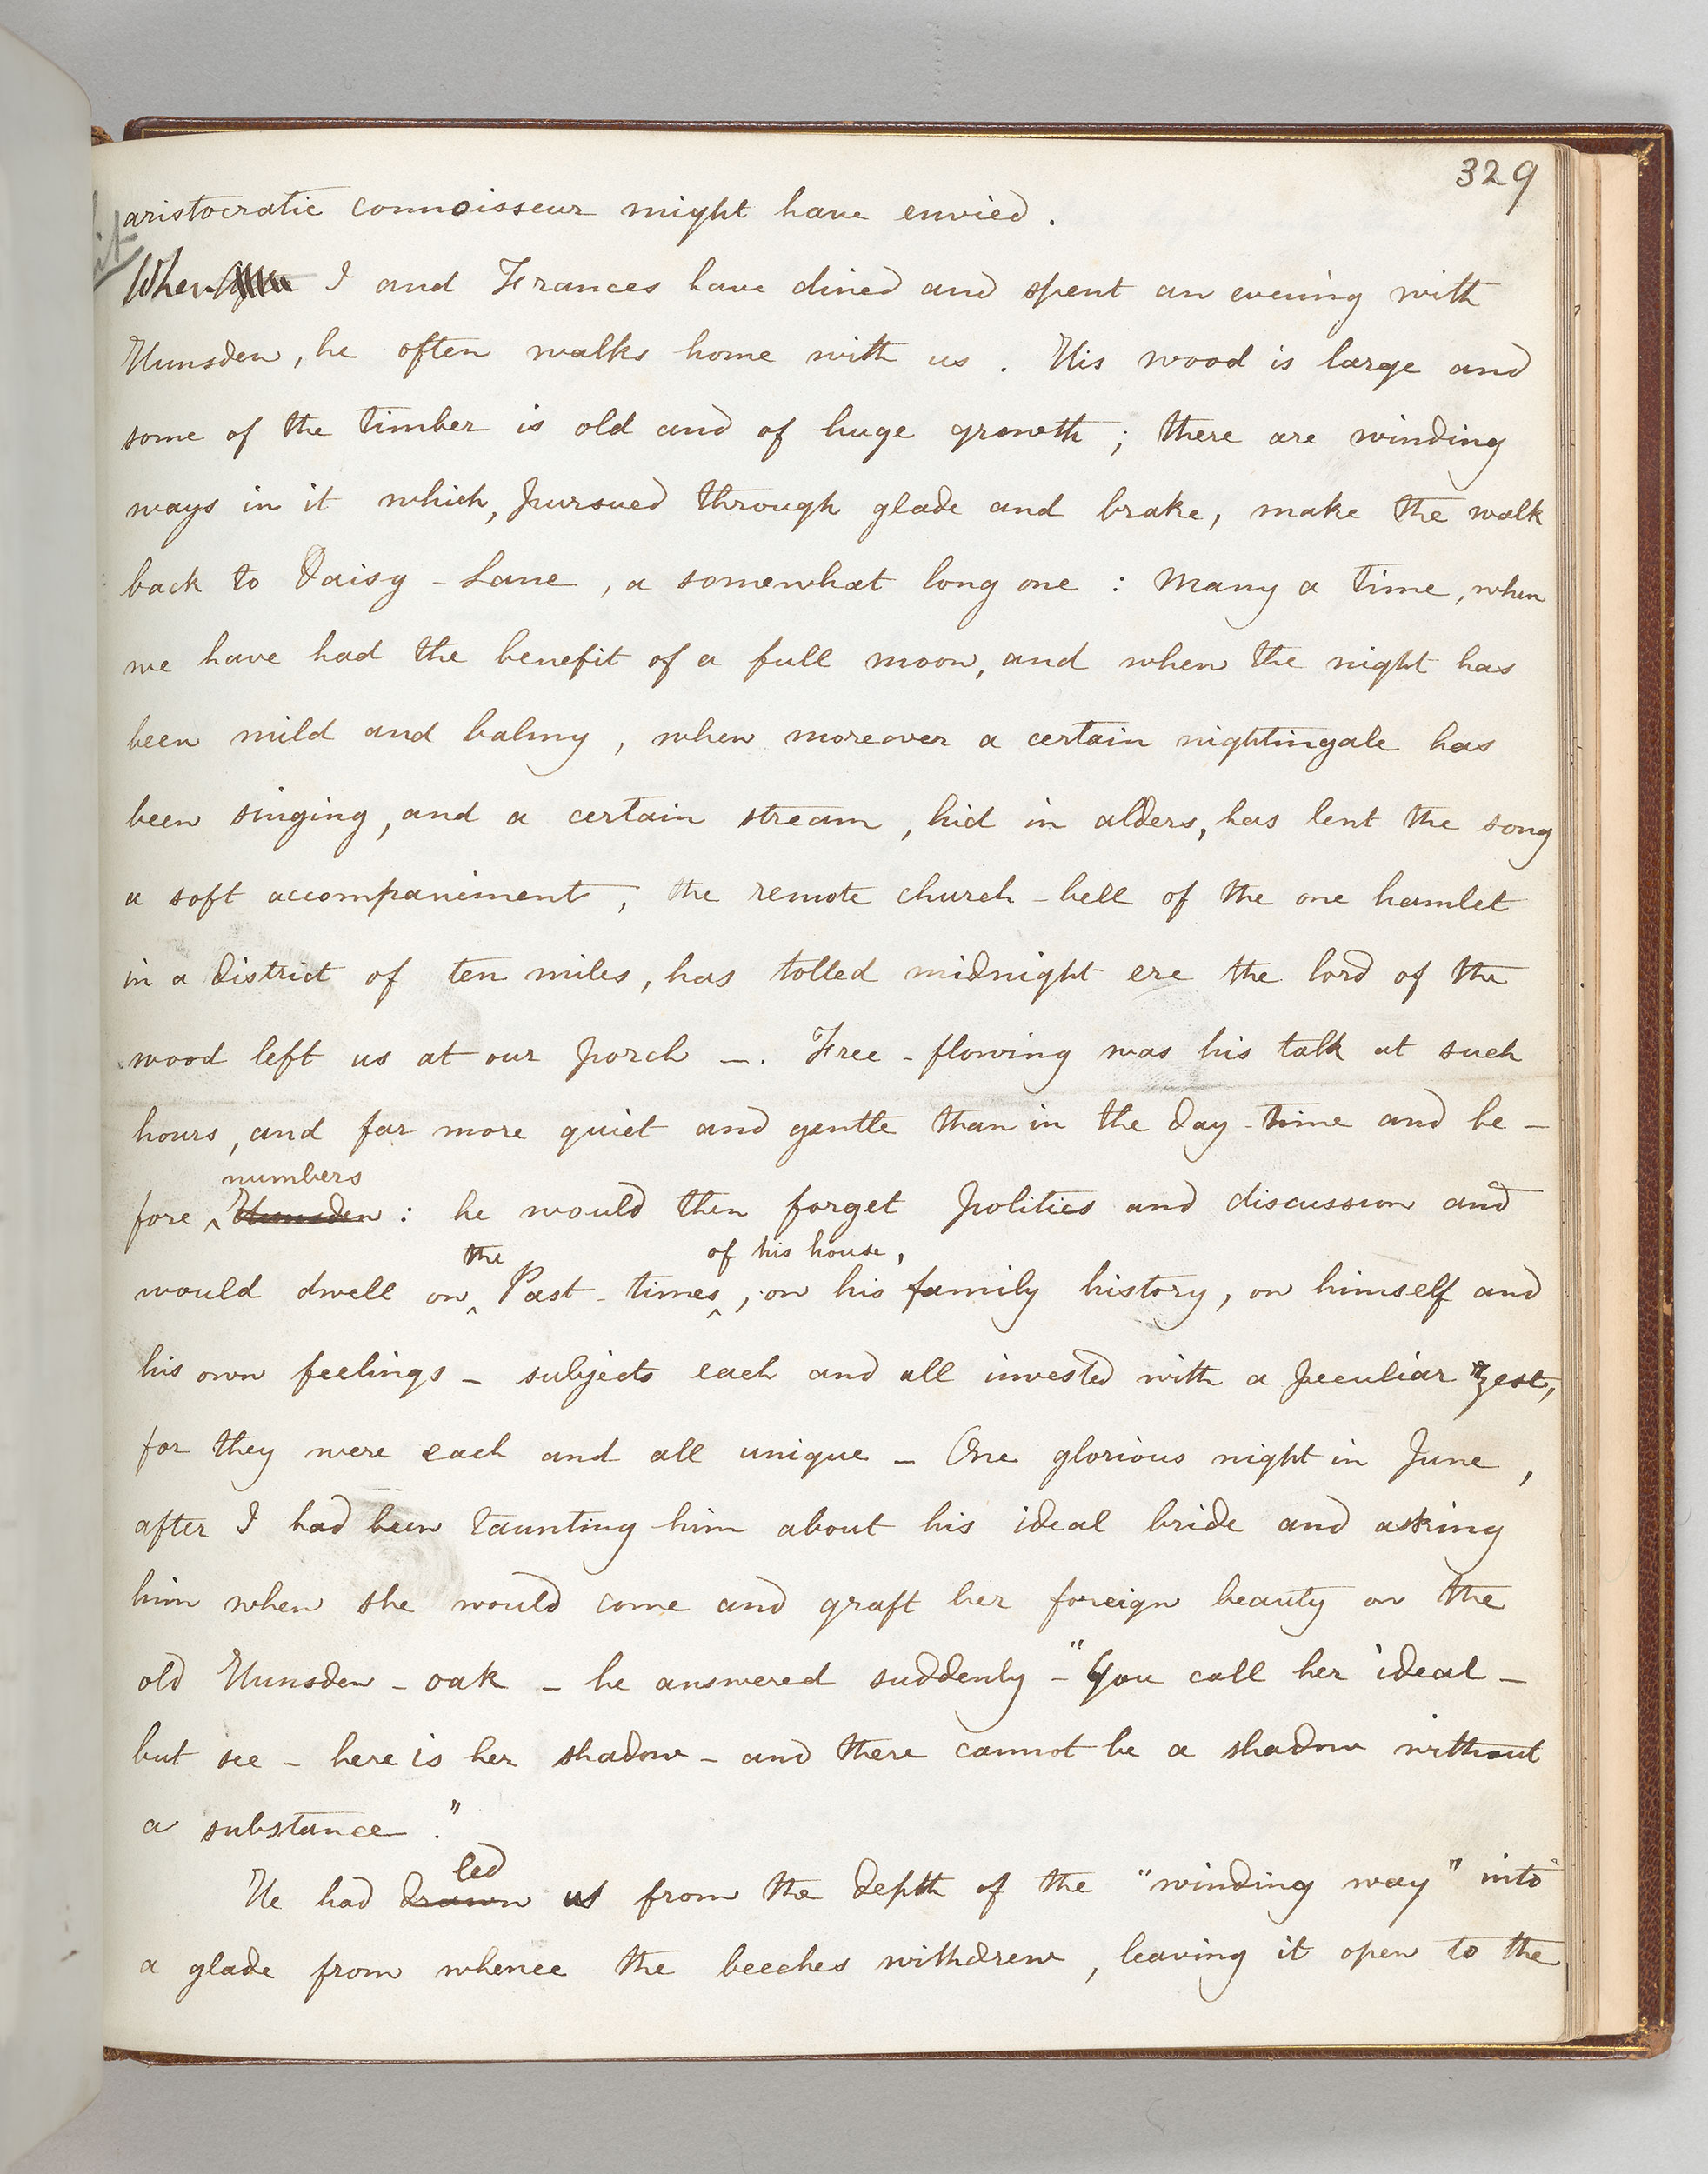 329
aristocratic connoisseur might have envied.
When I and Frances have dined and spent an evening with
Hunsden, he often walks home with us. His wood is large and
some of the timber is old and of huge growth; there are winding
ways in it which, pursued through glade and brake, make the walk
back to Daisy-Lane, a somewhat long one: Many a time, when
we have had the benefit of a full moon, and when the night has
been mild and balmy, when moreover a certain nightingale has
been singing, and a certain stream, hid in alders, has lent the song
a soft accompaniment, the remote church-bell of the one hamlet
in a district of ten miles, has tolled midnight ere the lord of the
wood left us at our porch —. Free-flowing was his talk at such
hours, and far more quiet and gentle than in the day-time and be-
numbers
fore ‸ Hunsden: he would then forget politics and discussion and
the of his house,
would dwell on ‸ Past-times ‸, on his family history, on himself and
his own feelings — subjects each and all invested with a peculiar zest,
for they were each and all unique — One glorious night in June,
after I had been taunting him about his ideal bride and asking
him when she would come and graft her foreign beauty on the
old Hunsden-oak — he answered suddenly — "You call her ideal —
but see — here is her shadow — and there cannot be a shadow without
a substance."
led
He had drawn us from the depth of the "winding way" into
a glade from whence the beeches withdrew, leaving it open to the